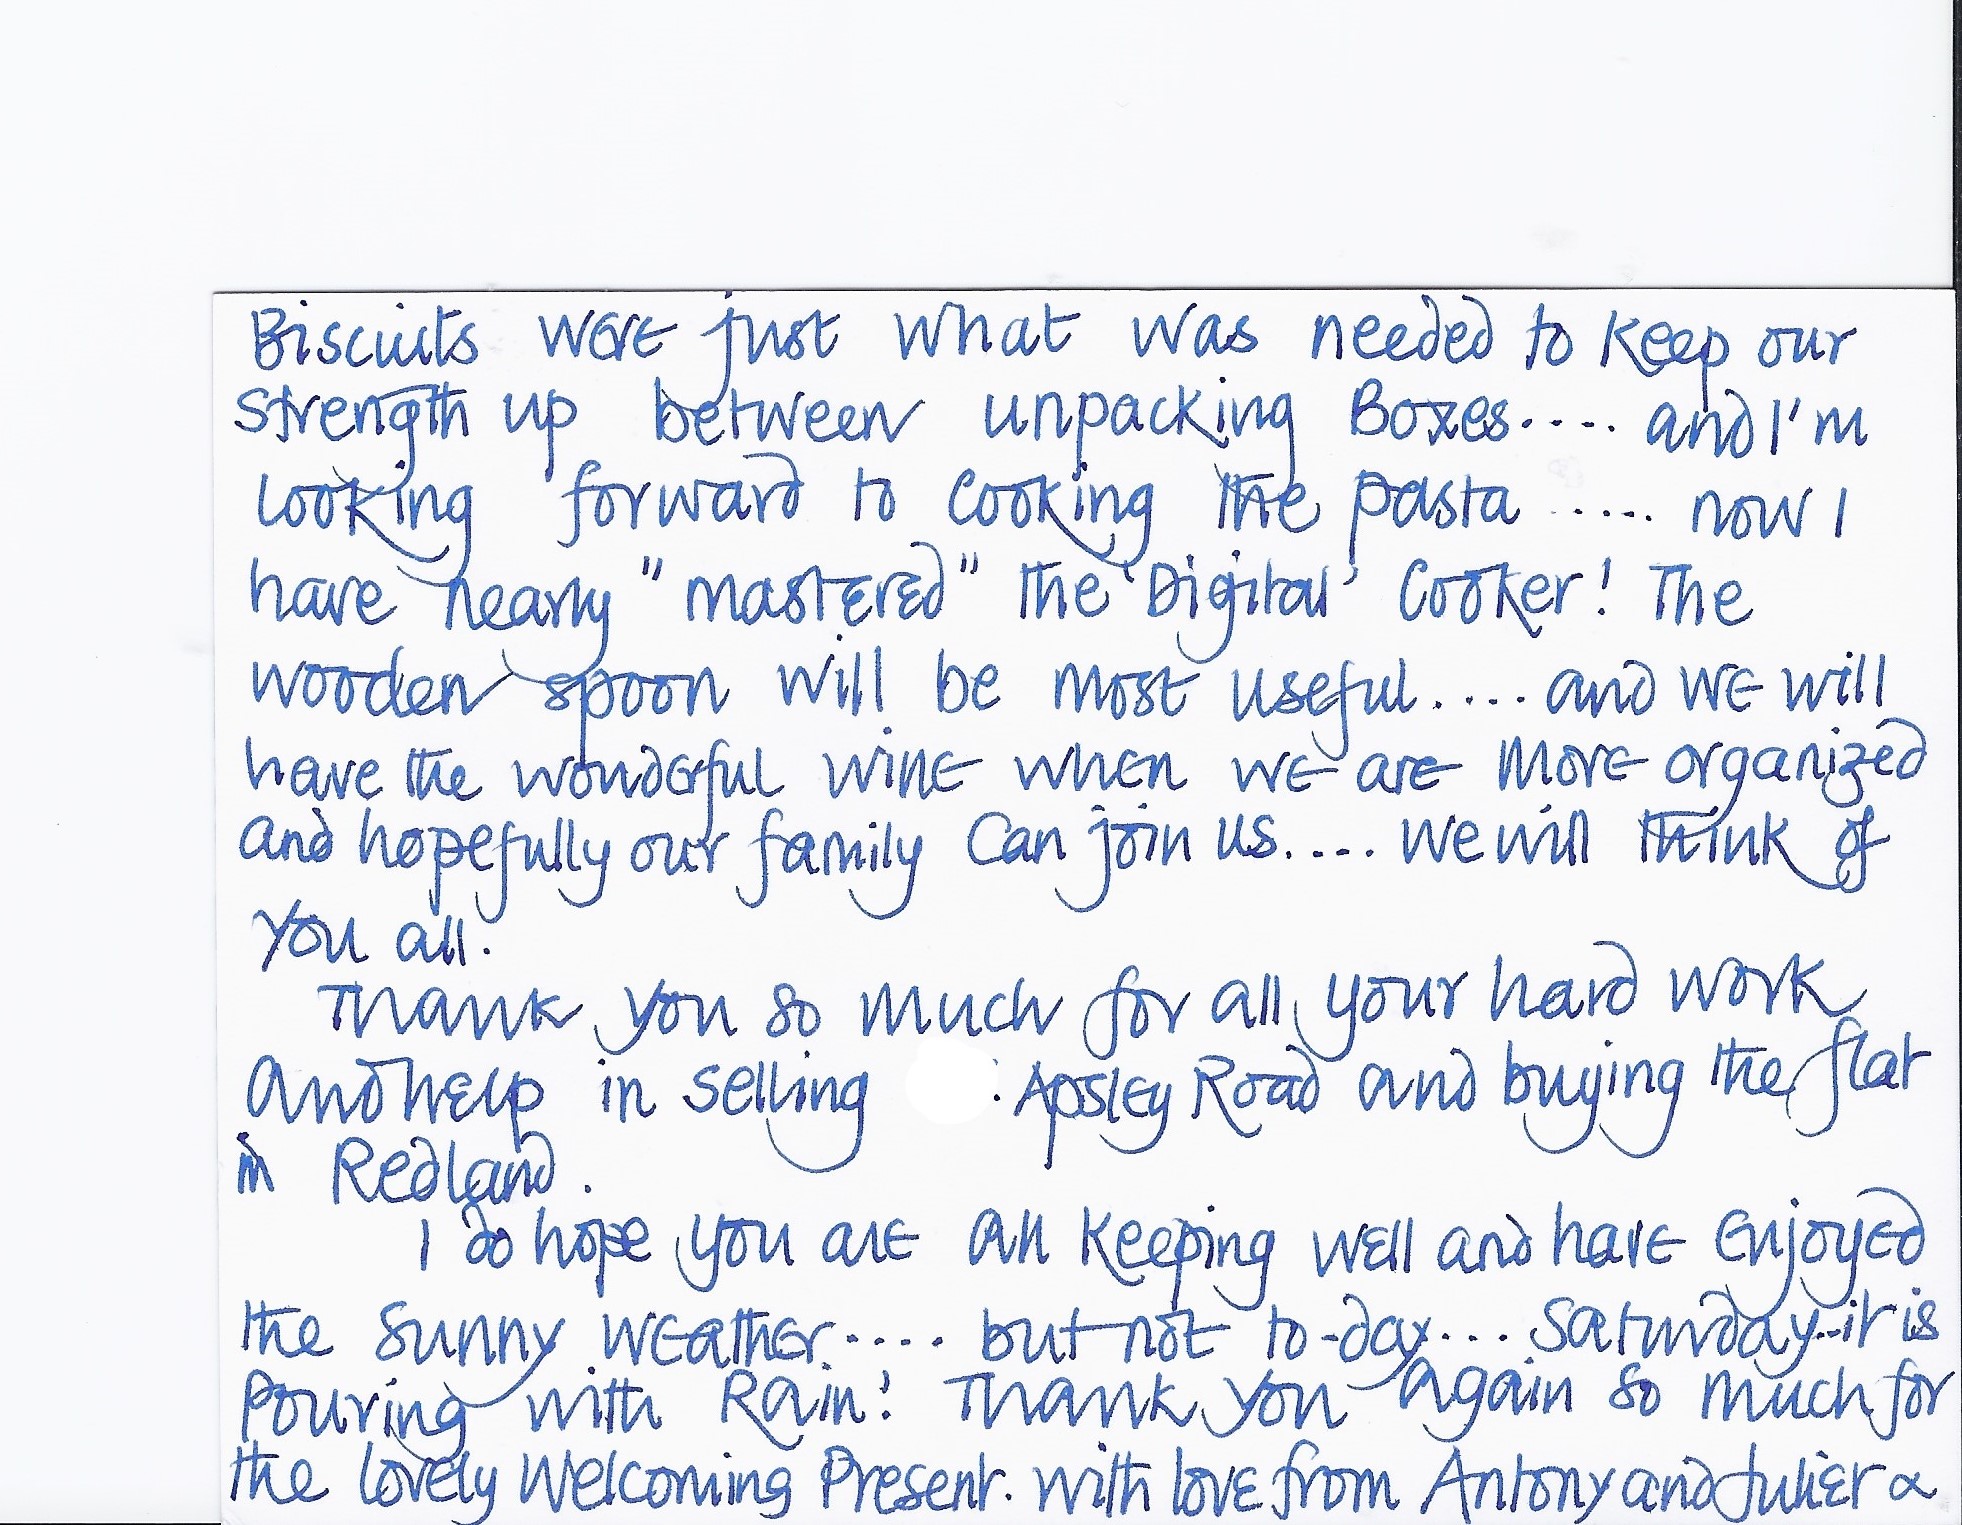 Biscuits were just what was needed to keep our
strength up between unpacking Boxes.... and I'm
looking forward to cooking the pasta ..... now I
have nearly "mastered" the 'Digital' Cooker! The
wooden spoon will be most useful.... and we will
have the wonderful wine when we are more organized
and hopefully our family can join us.... we will think of
you all.
Thank you so much for all your hard work
and help in selling Apsley Road and buying the flat
in Redland.
I do hope you are all keeping well and have enjoyed
the sunny weather.... but not to-day... Saturday..it is
pouring with Rain! Thank you again so much for
the lovely Welcoming Present. With love from Antony and Juliet